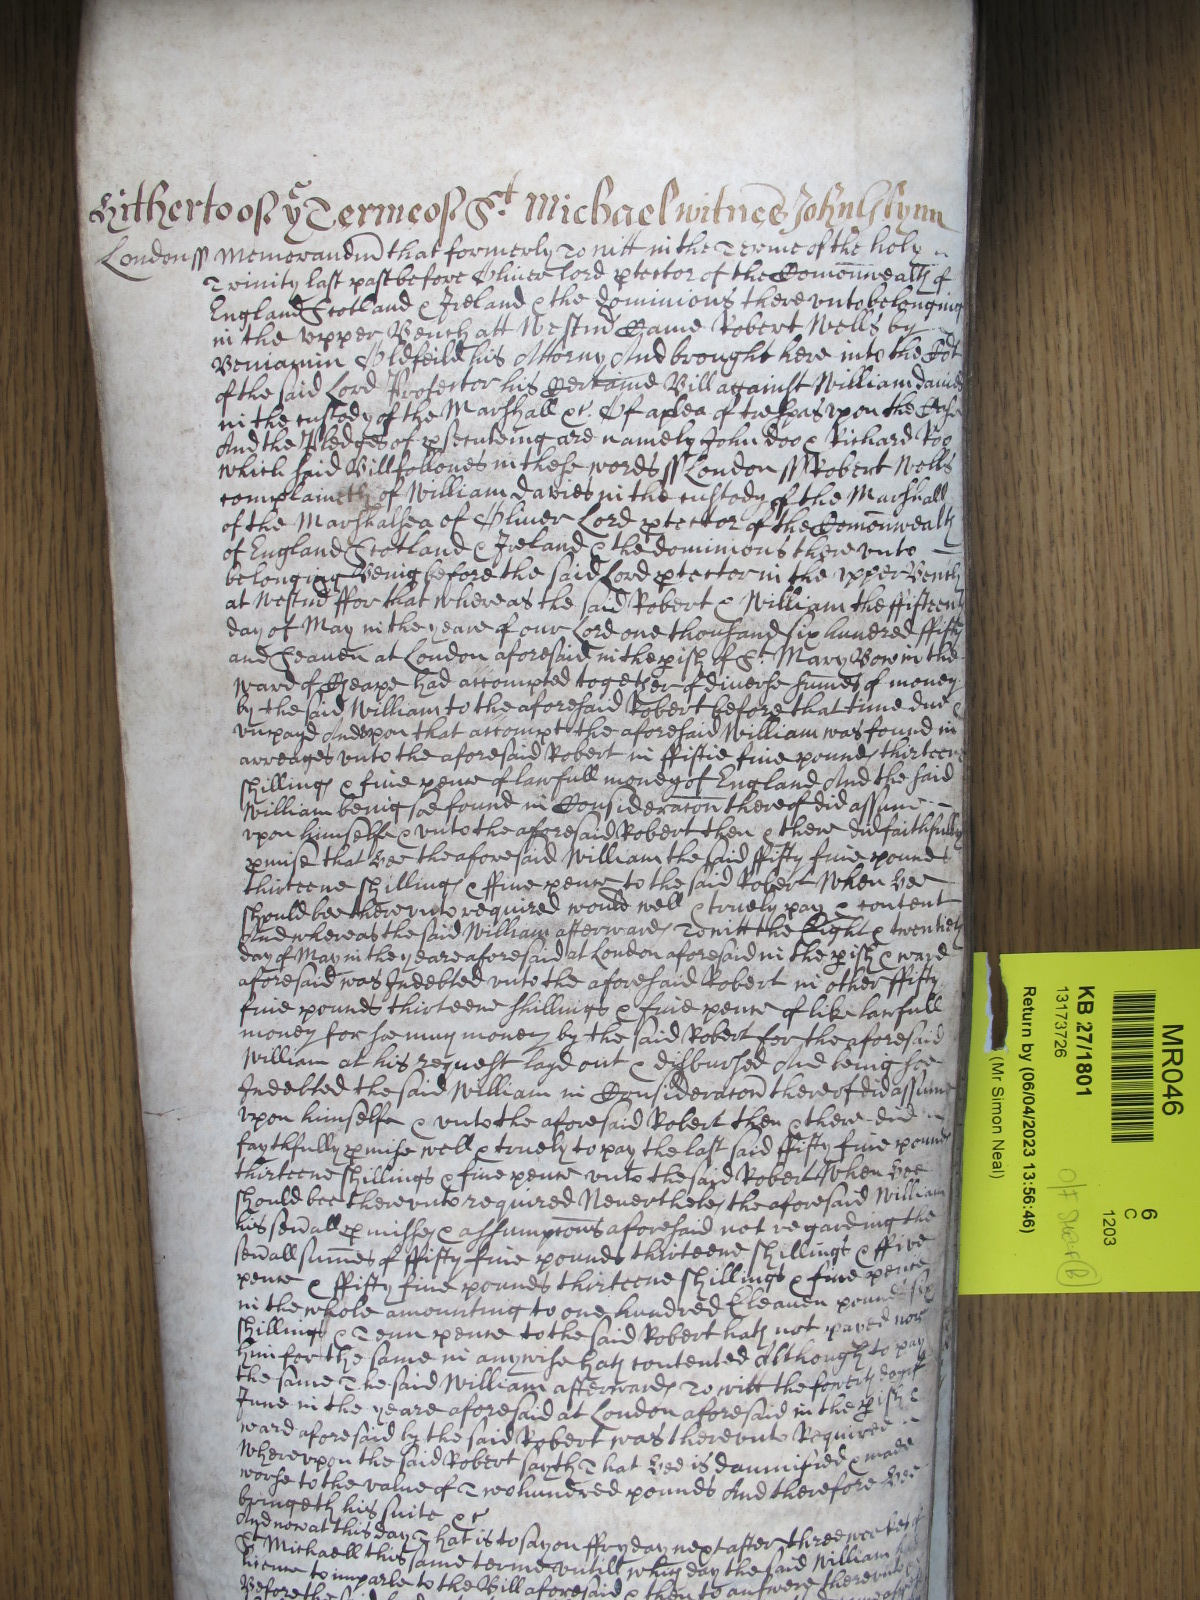 Hitherto of ye Terme of St Michael witnes John Glynn
London ss Memorandum that formerly to witt in the Terme of the holy
Trinity last past before Oliver lord ptector of the Comonwealth of
England Scotland & Ireland & the dominions there vnto belonging
in the vpper Bench att Westmr Came Robert Wells by
Beniamin Oldfeild his Attorny And brought here into the Cort
of the said Lord Protector his Certaine Bill against William Davies
in the custody of the Marshall &c. Of a plea of trespas vpon the Case
And the Pledges of psecuteing are namely John doo & Richard Roo
which said Bill followes in these words ss London ss Robert Wells
complaineth of William Davies in the custody of the Marshall
of the Marshalsea of Oliuer Lord ptector of the Comonwealth
of England Scotland & Ireland & the dominions there vnto
belonging being before the said Lord ptector in the vpper Bench
at Westmr ffor that whereas the said Robert & William the ffifteenth
day of May in the yeare of our Lord one thousand six hundred ffifty
and Seauen at London aforesaid in the pish of St. Mary Bow in the
ward of Cheape had accompted together of diuerse sumes of money
by the said William to the aforesaid Robert before that time due &
vnpayd And vpon that accompt the aforesaid William was found in
arreages vnto the aforesaid Robert in ffiftie fiue pounds thirteene
shillings & fiue pence of lawfull money of England And the said
William being soe found in Consideracon thereof did assume
vpon himselfe & vnto the aforesaid Robert then & there did faithfully
pmise that hee the aforesaid William the said ffifty fiue pounds
thirteene shillings & ffiue pence to the said Robert When hee
should bee there vnto required would well & truely pay & content
And whereas the said William afterwards to witt the Eight & twentieth
day of May in the yeare aforesaid at London aforesaid in the pish & ward
aforesaid was Indebted vnto the aforesaid Robert in other ffifty
fiue pounds thirteene shillings & fiue pence of like lawfull
money for soe much money by the said Robert for the aforesaid
William at his request layd out & disbursed And being soe
Indebted the said William in Consideracon thereof did assume
vpon himselfe & vnto the aforesaid Robert then & there did
faythfully pmise well & truely to pay the last said ffifty fiue pounds
thirteene shillings & fiue pence vnto the said Robert When hee
should bee there vnto required Neuertheles the aforesaid William
his seuall pmisses & assumpcons aforesaid not regarding the
seuall sumes of ffifty fiue pounds thirteene shillings & ffive
pence & ffifty fiue pounds thirteene shillings & fiue pence
in the whole amounting to one hundred Eleauen pounds six
shillings & Tenn pence to the said Robert hath not payed nor
him for the same in anywise hath contented Although to pay
the same The said William afterwards To witt the fowerth day of
June in the yeare aforesaid at London aforesaid in the pish &
ward aforesaid by the said Robert was there vnto Required
Wherevpon the said Robert sayth That hee is damnified & made
worse to the value of Two hundred pounds And therefore hee
bringeth his suite &c
And now at this day That is to say on ffryday next after three weekes of
St Michaell this same terme vntill which day the said William had
licence to imparle to the Bill aforesaid & then to answere therevnto
Before the said
MR046
6
C
1203
KB 27/1801
13173726
Return by (06/04/2023 13:56:46)
(Mr Simon Neal)